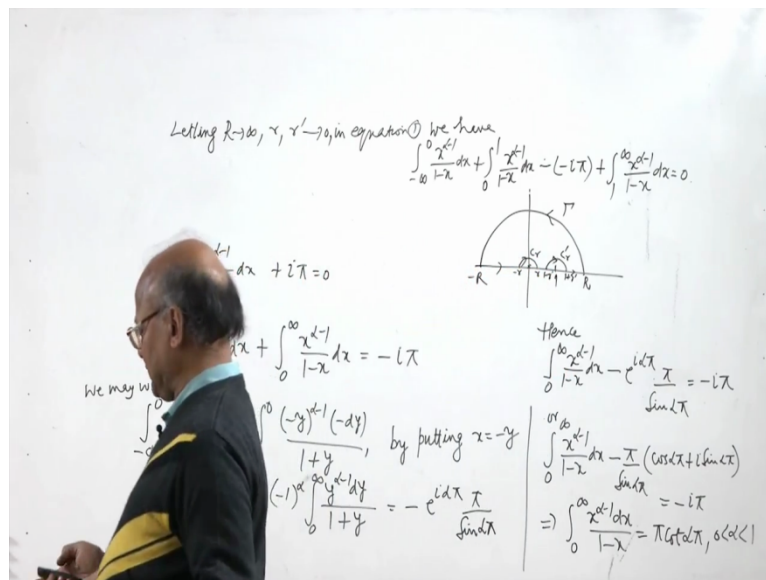 Letting R→∞, r, r'→0, in equation ① we have
∫_{-∞}^{0} x^{α-1}/(1-x) dx + ∫_{0}^{1} x^{α-1}/(1-x) dx - (-iπ) + ∫_{1}^{∞} x^{α-1}/(1-x) dx = 0
Γ
C_r C_r'
-R -r r 1-r' 1 1+r' R
dx + iπ = 0
dx + ∫_{0}^{∞} x^{α-1}/(1-x) dx = -iπ
We may w
(-y)^{α-1} (-dy)/(1+y), by putting x=-y
(-1)^α ∫_{0}^{∞} y^{α-1} dy/(1+y) = - e^{iαπ} π/Sin απ
Hence
∫_{0}^{∞} x^{α-1}/(1-x) dx - e^{iαπ} π/Sin απ = -iπ
or
∫_{0}^{∞} x^{α-1}/(1-x) dx - π/Sin απ (cos απ + i Sin απ)
= -iπ
⇒ ∫_{0}^{∞} x^{α-1} dx/(1-x) = π cot απ, 0<α<1